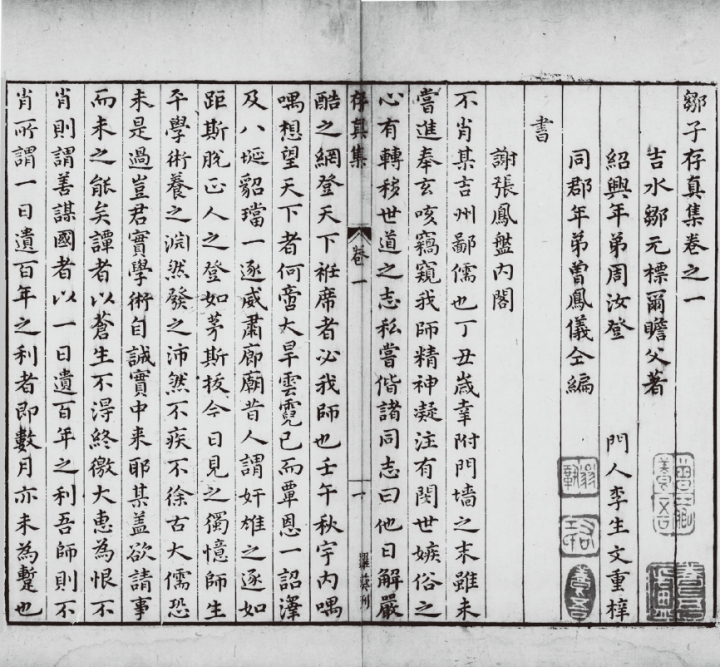 鄒子存真集卷之一
吉水鄒元標爾瞻父著
紹興年弟周汝登
同郡年弟曽鳳儀仝編
門人李生文重梓
書
謝張鳳盤內閣
不肖某吉州鄙儒也丁丑歳幸附門墻之末雖未
嘗進奉玄咳竊窺我師精神凝注有閔世嫉俗之
心有轉移世道之志私嘗偕諸同志曰他日解嚴
存真集
卷一
一
酷之網登天下袵席者必我師也壬午秋宇內喁
喁想望天下者何啻大旱雲霓已而覃恩一詔澤
及八埏貂璫一逐威肅廊廟昔人謂奸雄之逐如
距斯脫正人之登如茅斯拔今日見之獨憶師生
平學術養之淵然發之沛然不疾不徐古大儒恐
未是過豈君實學術自誠實中来耶某盖欲請事
而未之能矣譚者以蒼生不得終徼大惠為恨不
肖則謂善謀國者以一日遺百年之利吾師則不
肖所謂一日遺百年之利者即數月亦未為蹔也